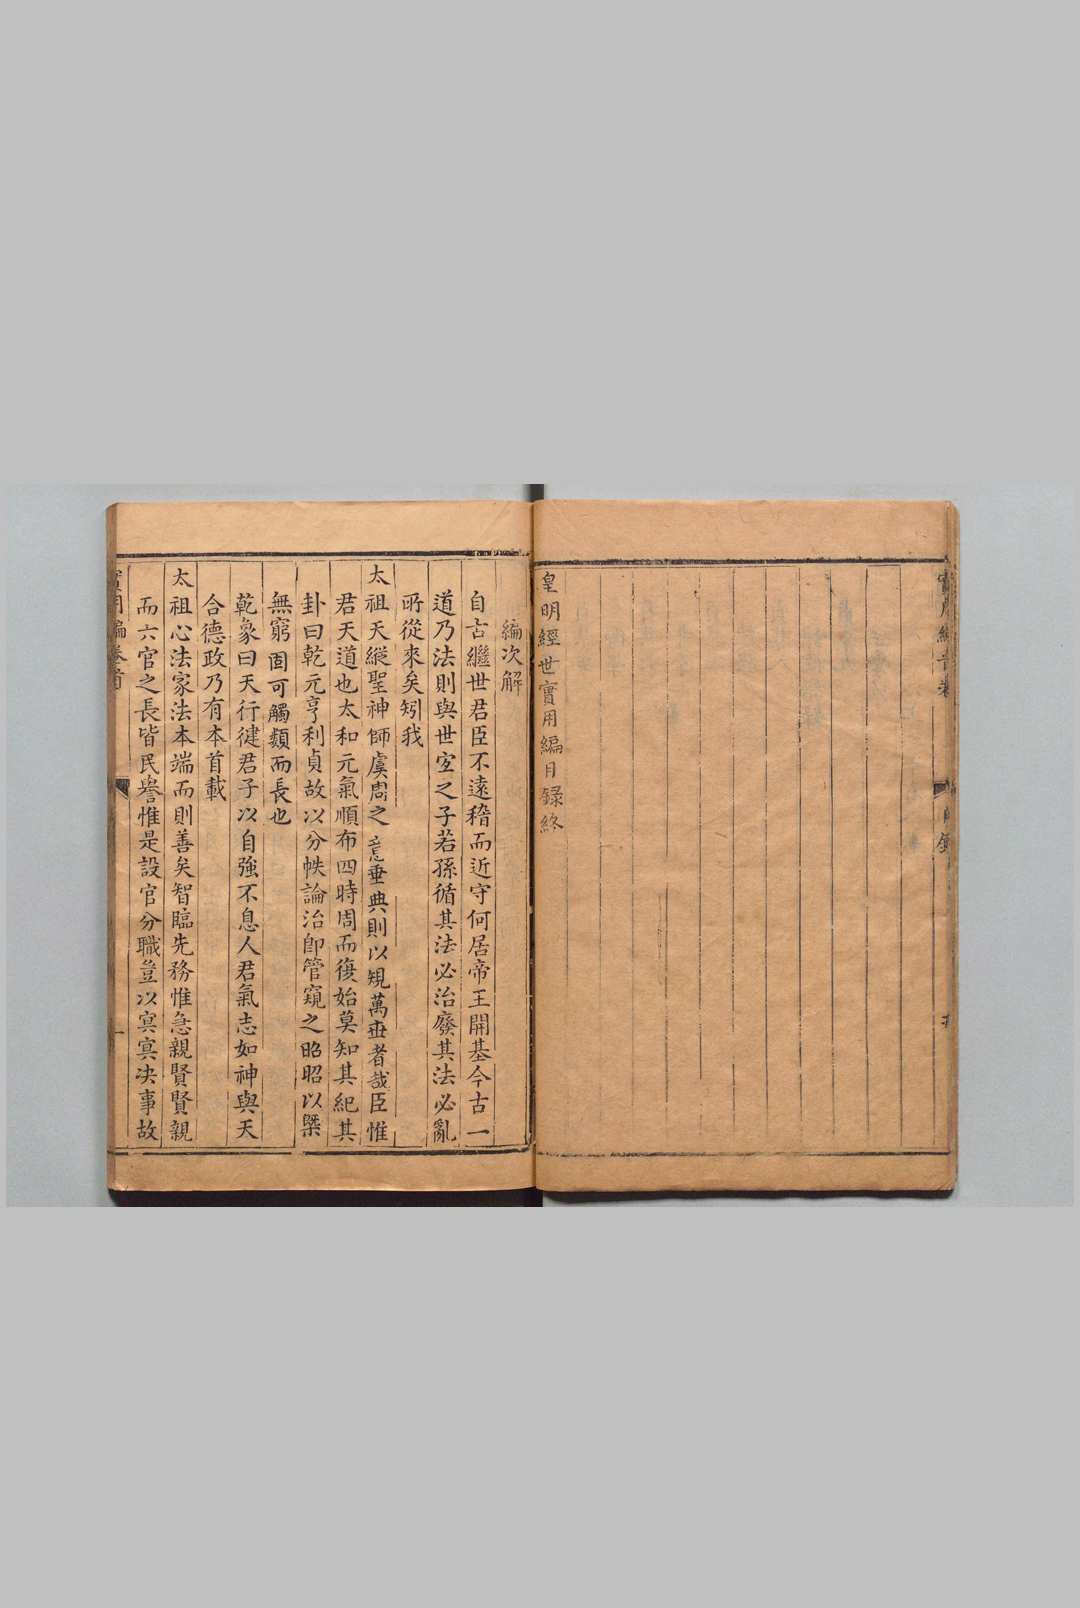 皇明經世實用編目錄終
編次解
自古繼世君臣不遠稽而近守何居帝王開基今古一
道乃法則與世室之子若孫循其法必治廢其法必亂
所從來矣矧我
太祖天縱聖神師虞周之意垂典則以䂓萬世者哉臣惟
君天道也太和元氣順布四時周而復始莫知其紀其
卦曰乾元亨利貞故以分帙論治卽管窺之昭昭以槩
無窮固可觸類而長也
乾象曰天行健君子以自強不息人君氣志如神與天
合德政乃有本首載
太祖心法家法本端而則善矣智臨先務惟急親賢賢親
而六官之長皆民譽惟是設官分職豈以㝠㝠决事故
實用編卷首
一